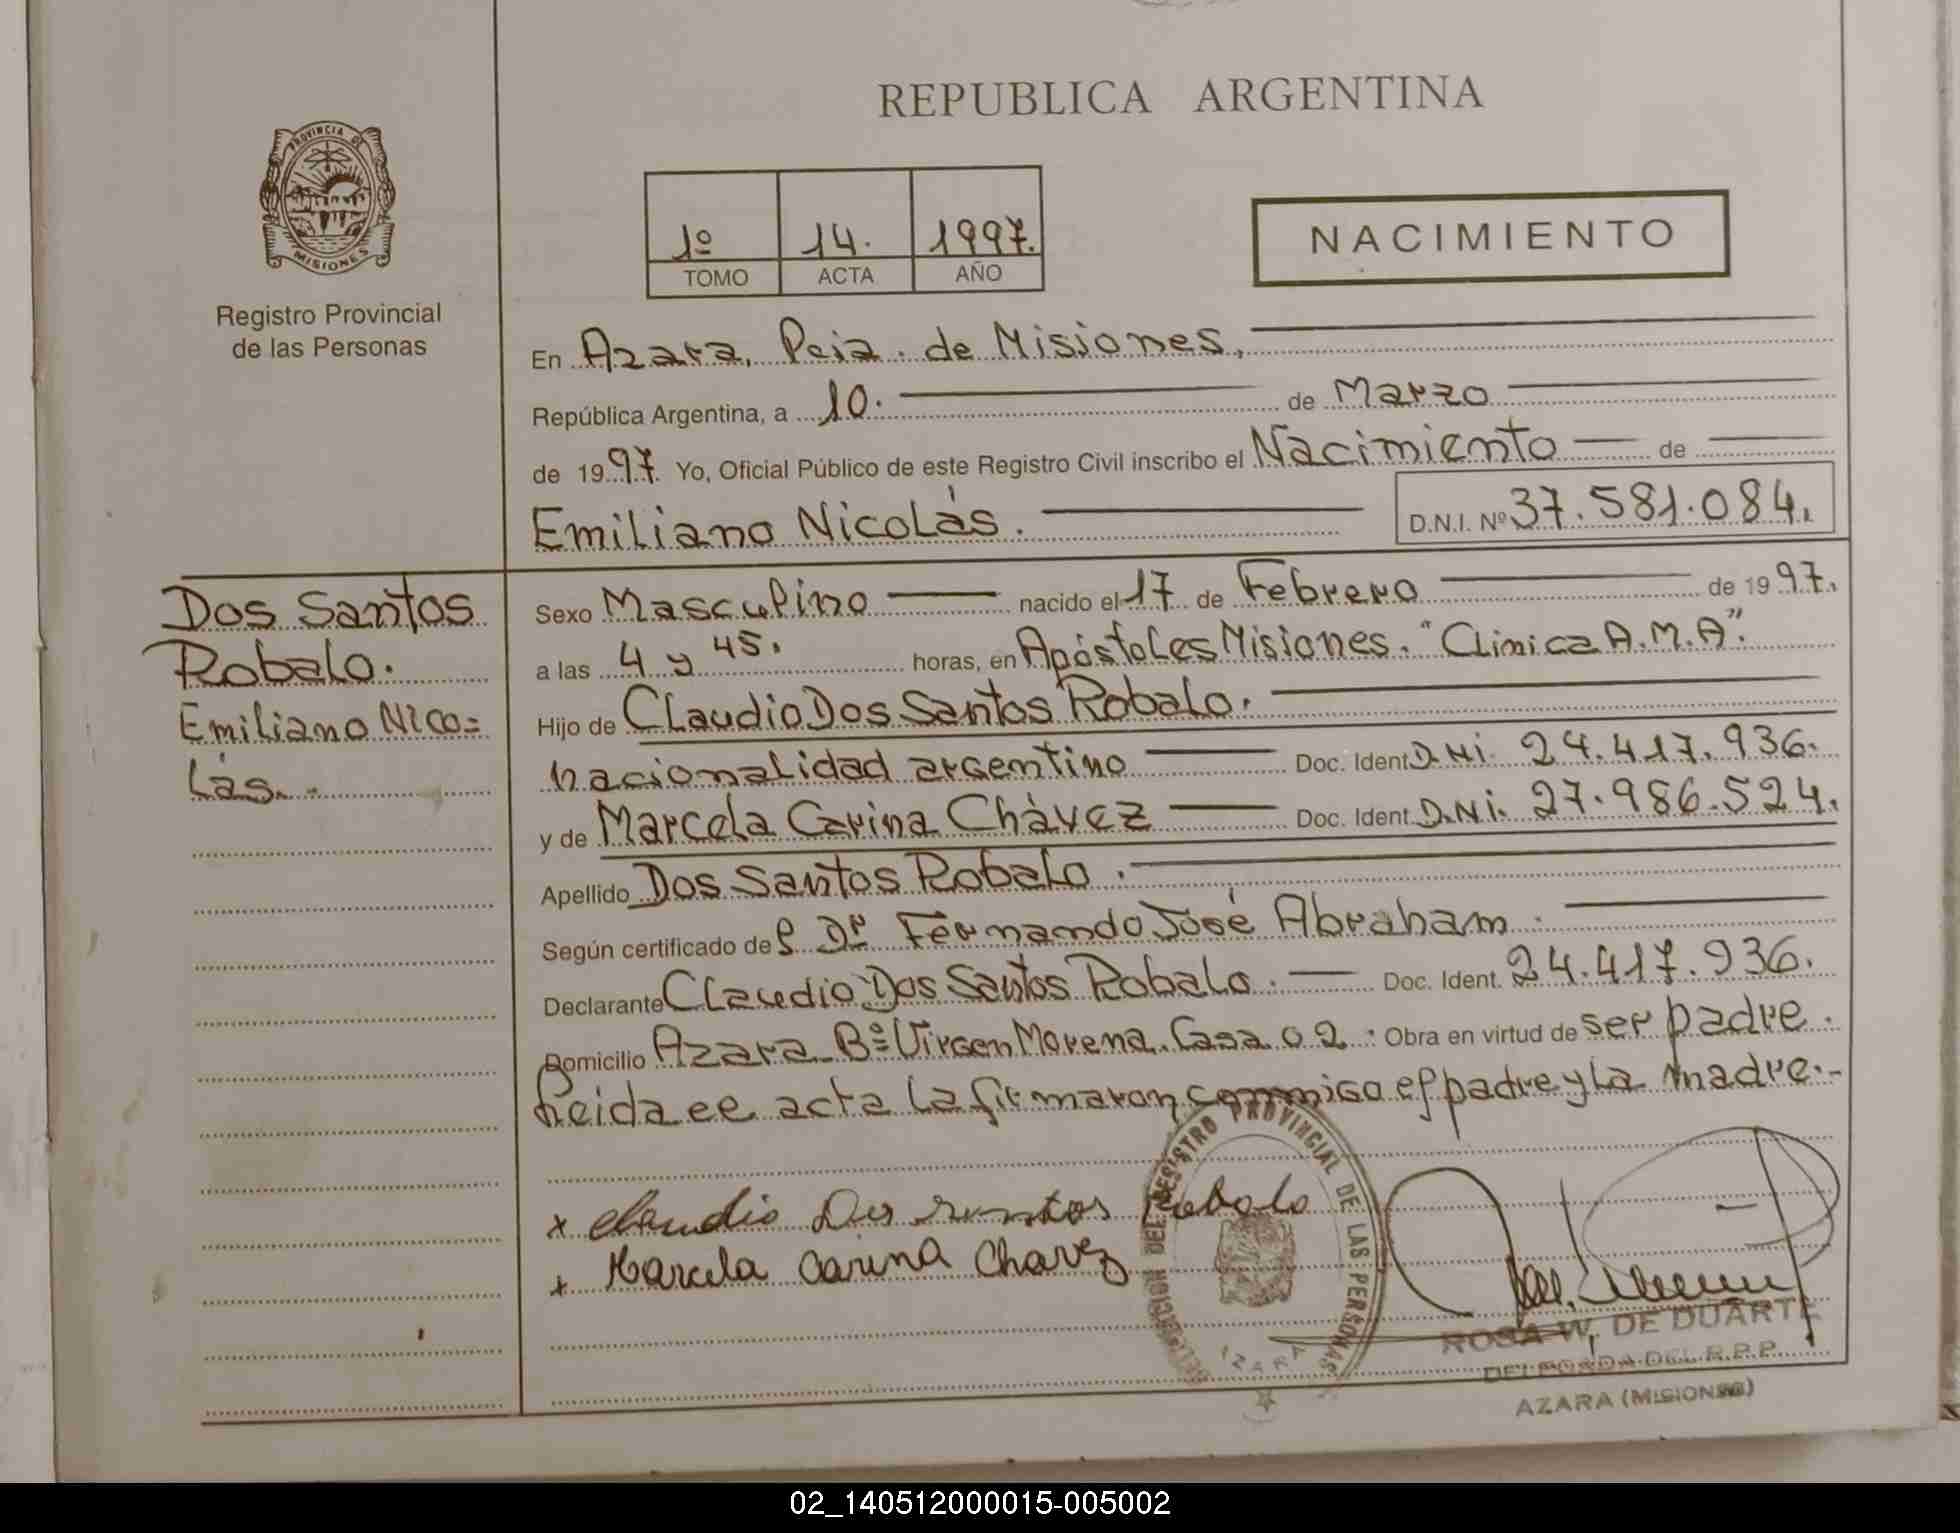 REPUBLICA ARGENTINA
PROVINCIA DE
MISIONES
Registro Provincial
de las Personas
1º 14. 1997.
TOMO ACTA AÑO
NACIMIENTO
En Azara, Pcia. de Misiones,
República Argentina, a 10. de Marzo
de 1997. Yo, Oficial Público de este Registro Civil inscribo el Nacimiento de
Emiliano Nicolàs. D.N.I. Nº 37.581.084.
Dos Santos
Robalo.
Emiliano Nico=
làs.-
Sexo Masculino nacido el 17 de Febrero de 1997.
a las 4 y 45. horas, en Apóstoles Misiones. "Clinica A.M.A".
Hijo de Claudio Dos Santos Robalo.
nacionalidad argentino Doc. Ident D.Ni. 24.417.936.
y de Marcela Carina Chàvez Doc. Ident. D.Ni. 27.986.524.
Apellido Dos Santos Robalo.
Según certificado de l Dr Fernando José Abraham.
Declarante Claudio Dos Santos Robalo. Doc. Ident. 24.417.936.
Domicilio Azara Bº Virgen Morena. Casa 02. Obra en virtud de ser padre.
Leida el acta la firmaron conmigo el padre y la madre.-
x Claudio Dos Santos Robalo
x Marcela Carina Chavez
DELEGACION DEL REGISTRO PROVINCIAL DE LAS PERSONAS
AZARA
ROSA W. DE DUARTE
DELEGADA DEL R.P.P.
AZARA (MISIONES)
02_140512000015-005002